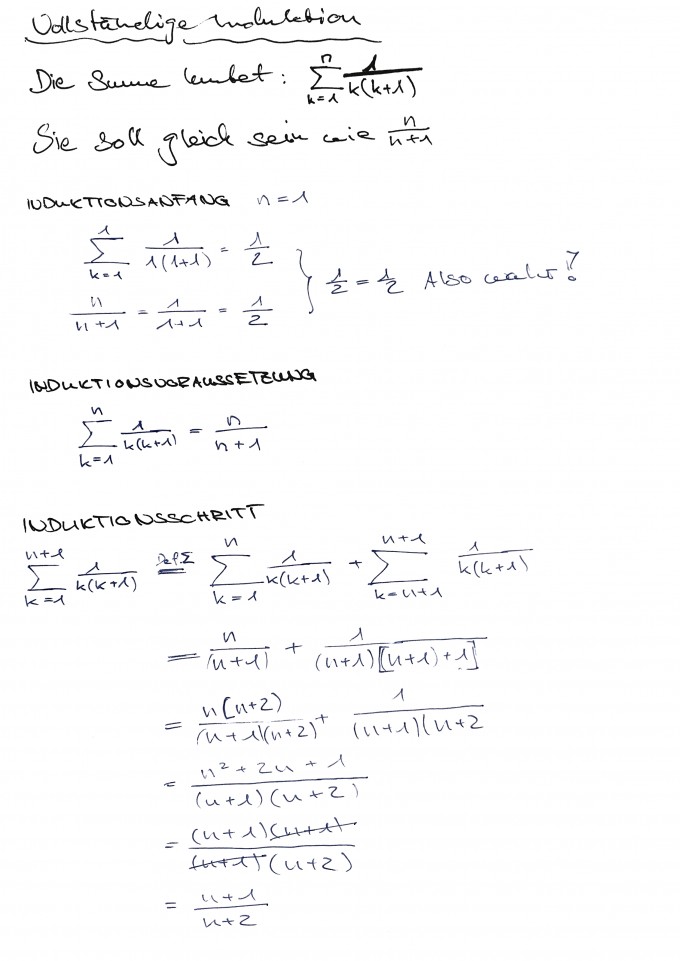 Vollständige Induktion
Die Summe lautet: $\sum_{k=1}^{n} \frac{1}{k(k+1)}$
Sie soll gleich sein wie $\frac{n}{n+1}$
INDUKTIONSANFANG n=1
$\sum_{k=1}^{1} \frac{1}{1(1+1)} = \frac{1}{2}$
$\frac{n}{n+1} = \frac{1}{1+1} = \frac{1}{2}$
} $\frac{1}{2} = \frac{1}{2}$ Also wahr!
INDUKTIONSVORAUSSETZUNG
$\sum_{k=1}^{n} \frac{1}{k(k+1)} = \frac{n}{n+1}$
INDUKTIONSSCHRITT
$\sum_{k=1}^{n+1} \frac{1}{k(k+1)} \overset{Def. Σ}{=} \sum_{k=1}^{n} \frac{1}{k(k+1)} + \sum_{k=n+1}^{n+1} \frac{1}{k(k+1)}$
$= \frac{n}{(n+1)} + \frac{1}{(n+1)[(n+1)+1]}$
$= \frac{n(n+2)}{(n+1)(n+2)} + \frac{1}{(n+1)(n+2}$
$= \frac{n^2+2n+1}{(n+1)(n+2)}$
$= \frac{(n+1)(n+1)}{(n+1)(n+2)}$
$= \frac{n+1}{n+2}$